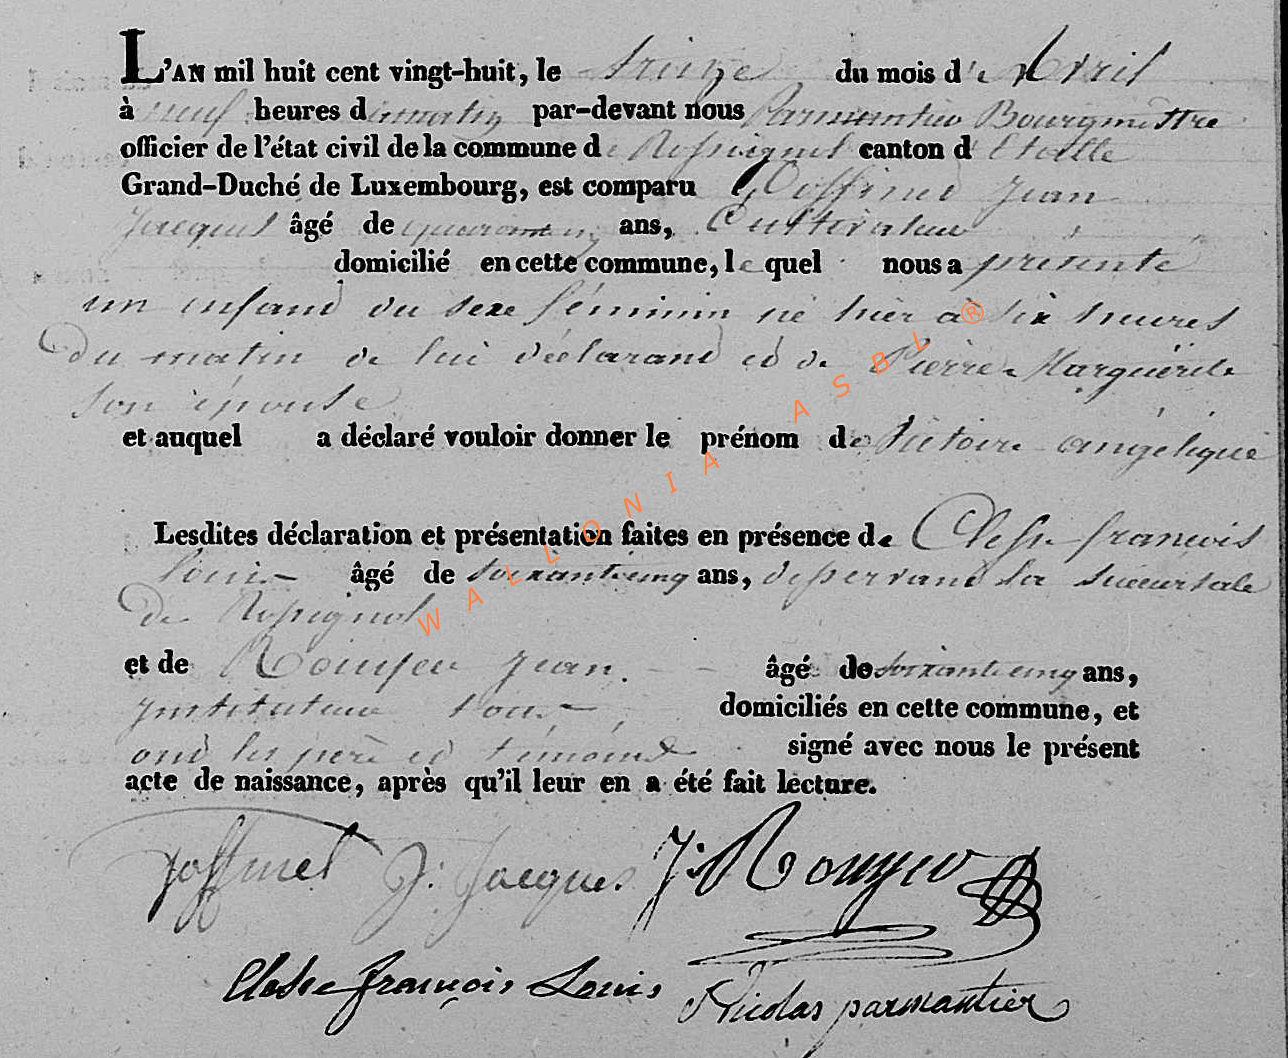 L'AN mil huit cent vingt-huit, le treize du mois d'Avril
à neuf heures du matin par-devant nous Parmentier Bourgmettre
officier de l'état civil de la commune de Rossignol canton d'Etalle
Grand-Duché de Luxembourg, est comparu Goffinet Jean
Jacques âgé de ans, Cultivateur
domicilié en cette commune, lequel nous a présenté
un enfant du sexe féminin né hier à six heures
Du matin de lui déclarant et de Pierre Marguerite
son épouse
et auquel a déclaré vouloir donner le prénom de Victoire angélique
Lesdites déclaration et présentation faites en présence de françois
Louis âgé de soixantecinq ans, desservant la succursale
de Rossignol
et de Jean âgé de soixantecinq ans,
instituteur tous domiciliés en cette commune, et
ont les père et témoins signé avec nous le présent
acte de naissance, après qu'il leur en a été fait lecture.
Goffinet J. Jacques J. Rouyer
françois Louis Nicolas parmantier
WALLONIA ASBL ®